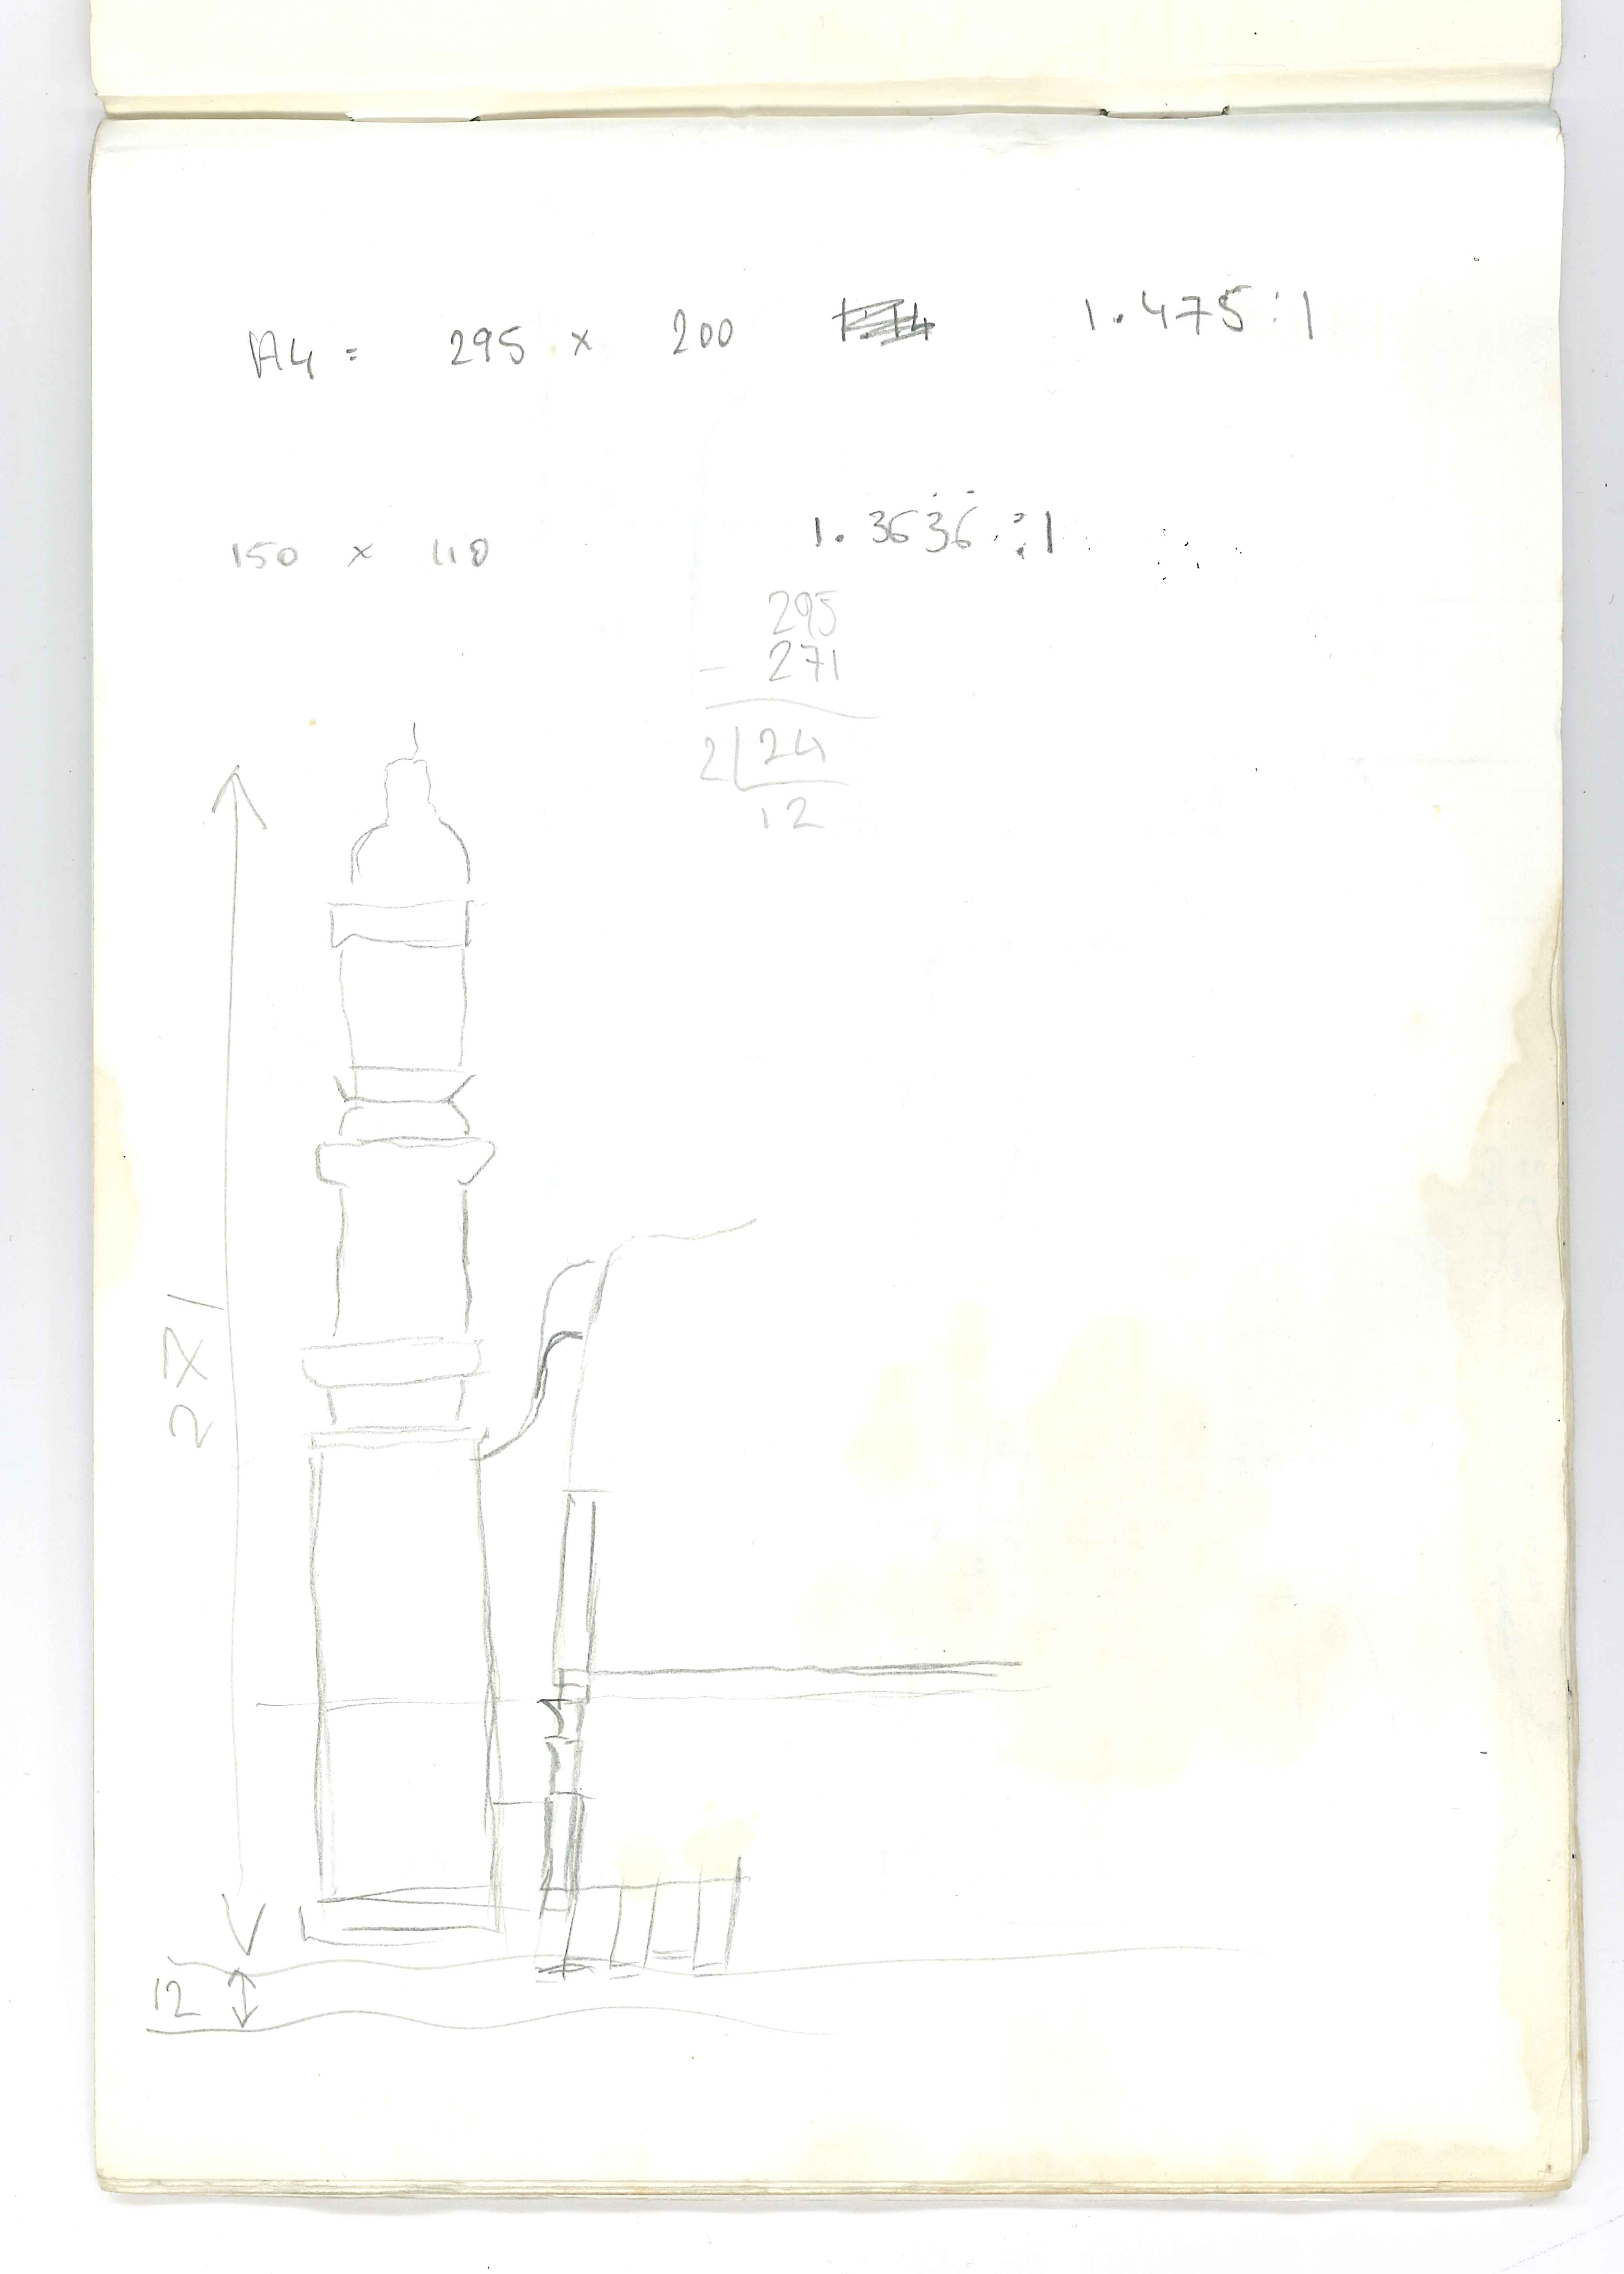 A4 = 295 x 200 1.475:1
150 x 110 1.3636:1
295
- 271
2 24
12
271
12